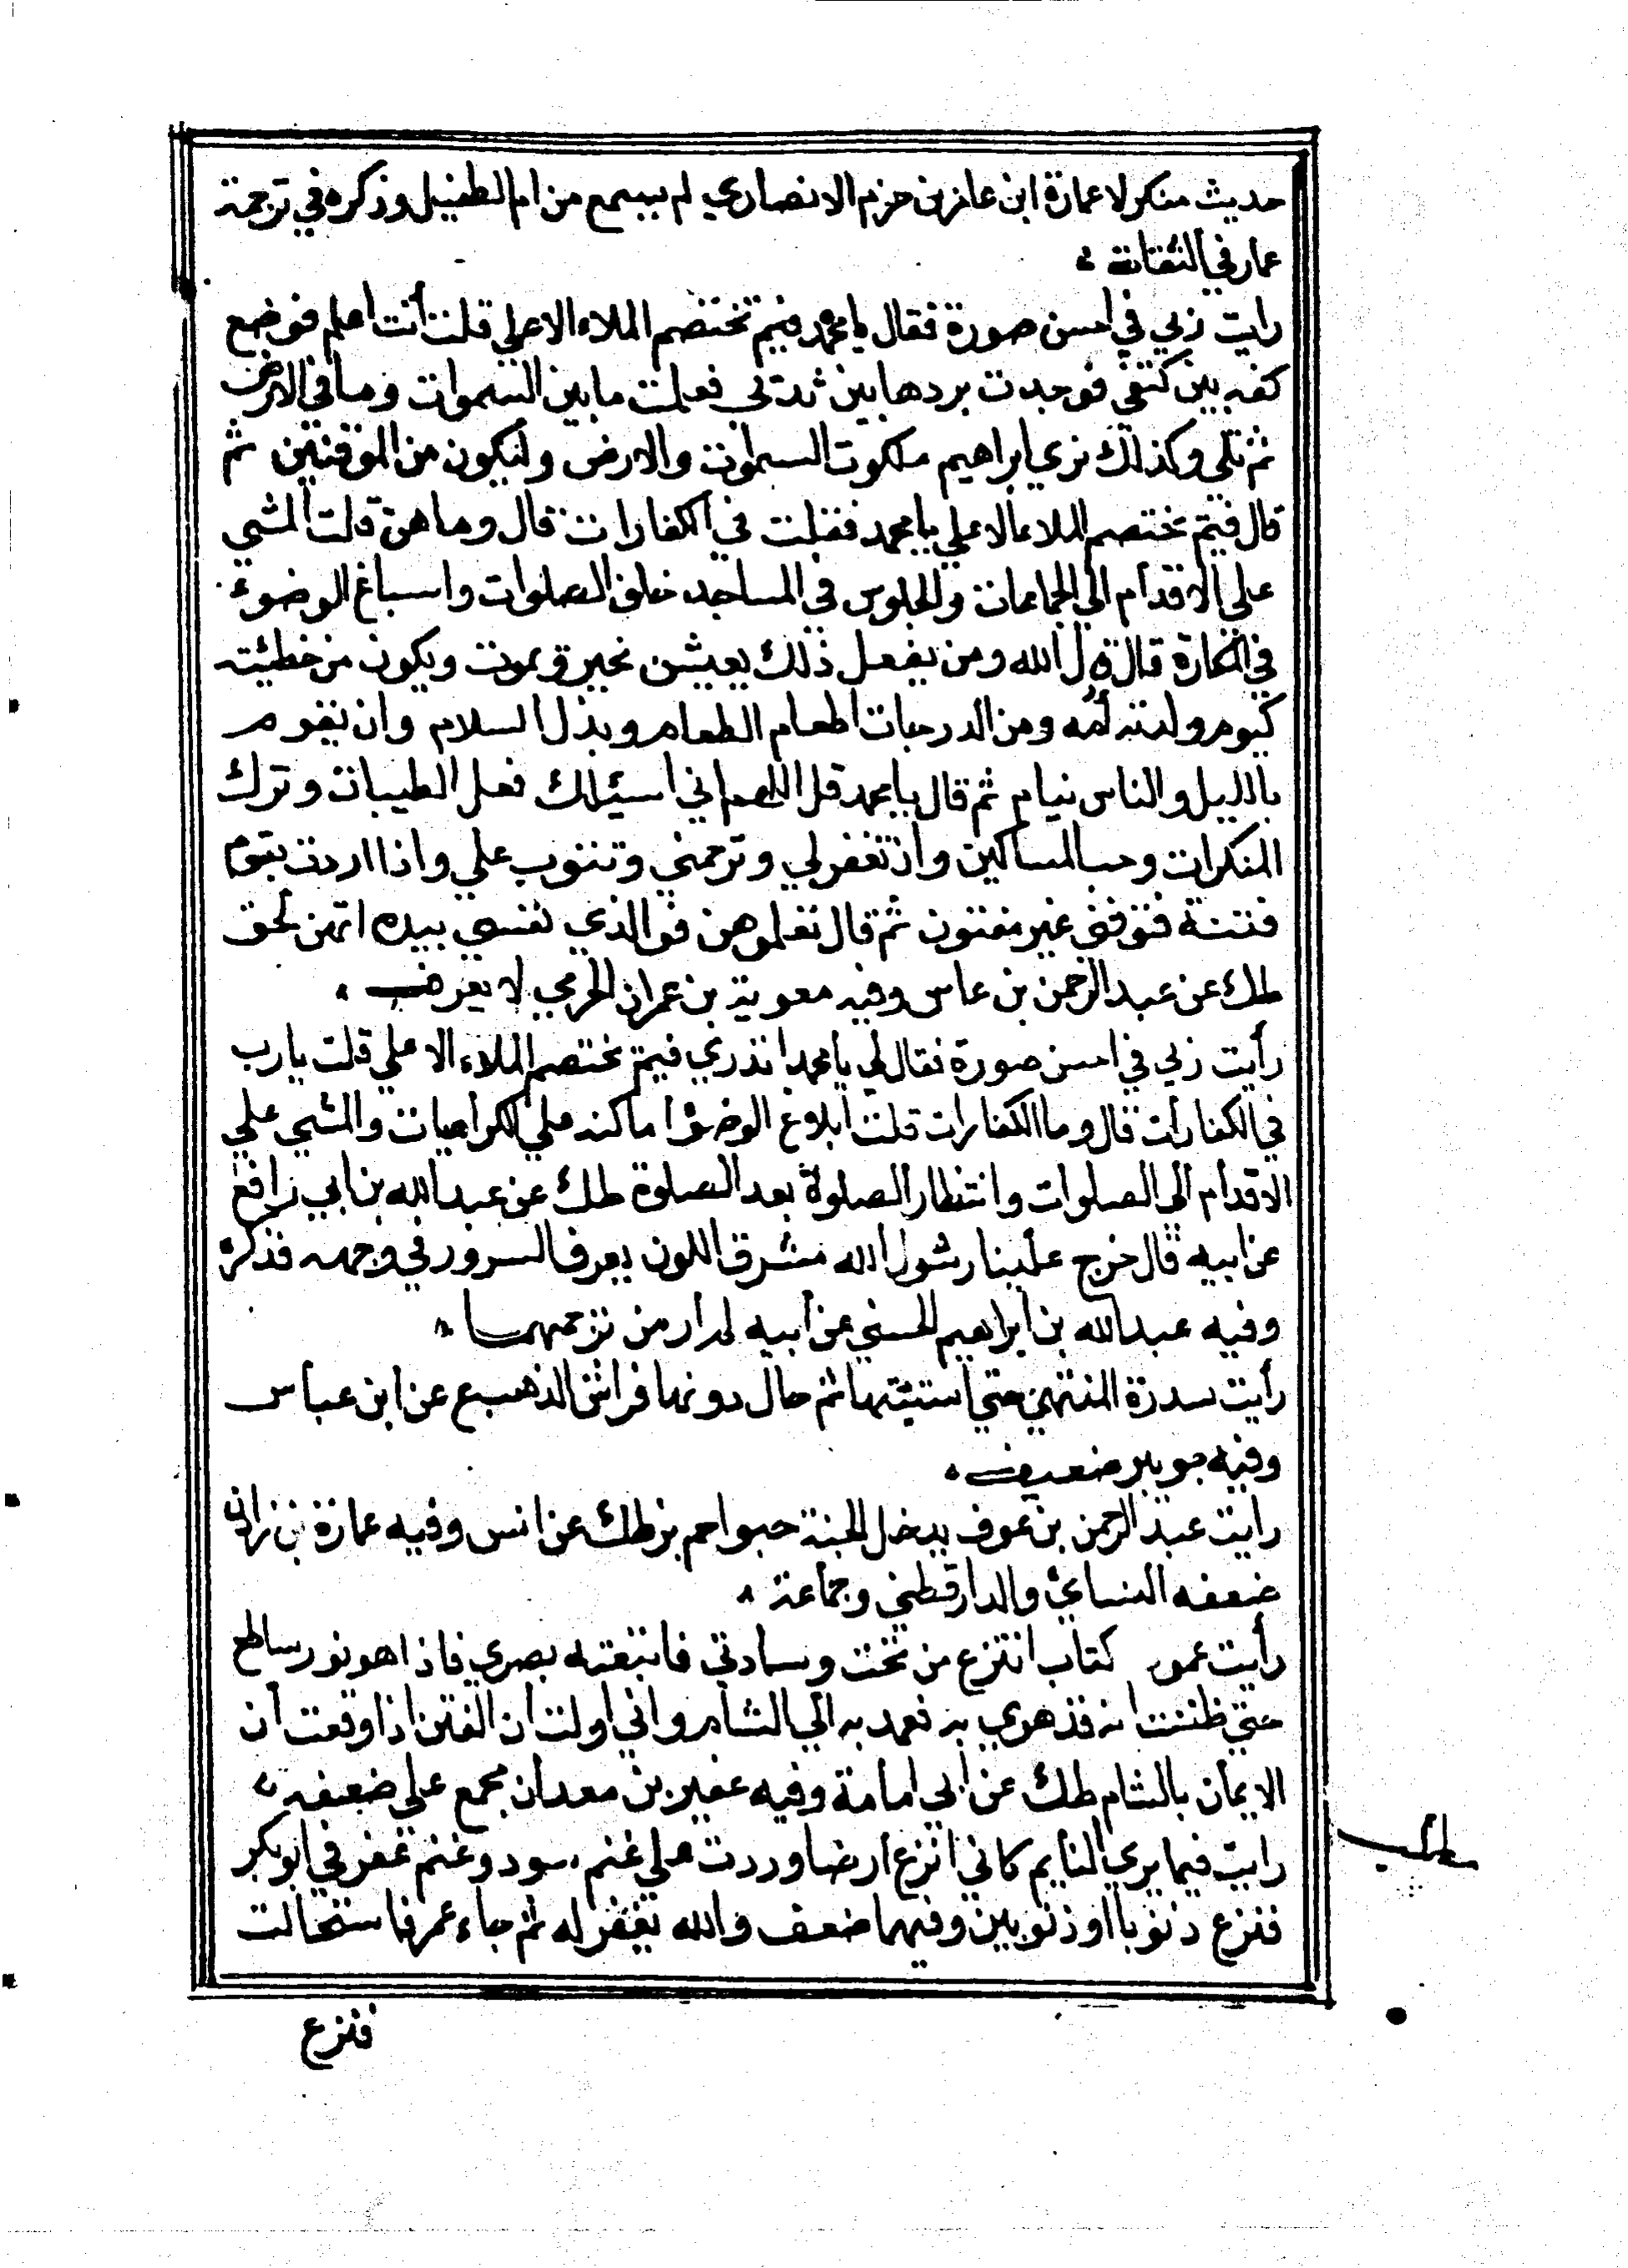 حديث منكر لا عمارة ابن عامر بن حزم الانصاري لم يسمع من ام الطفيل وذكره في ترجمة
عمار في الثقات
رايت ربي في احسن صورة فقال يا محمد فيم تختصم الملاء الاعلى قلت أنت اعلم فوضع
كفه بين كتفي فوجدت بردها بين ثديي فعلمت ما بين السموات وما في الارض
ثم تلى وكذلك نري ابراهيم ملكوت السموات والارض وليكون من الموقنين ثم
قال فيم تختصم الملاء الاعلي يا محمد فقلت في الكفارات قال وما هن قلت المشي
علي الاقدام الي الجماعات والجلوس في المساجد خلف الصلوات واسباغ الوضوء
في المكاره قال قال الله ومن يفعل ذلك يعيش بخير ويموت ويكون من خطيئته
كيوم ولدته أمه ومن الدرجات اطعام الطعام وبذل السلام وان تقوم
بالليل والناس نيام ثم قال يا محمد قل اللهم اني اسئلك فعل الطيبات وترك
المنكرات وحب المساكين وان تغفر لي وترحمني وتتوب علي واذا اردت بقوم
فتنة فتوفني غير مفتون ثم قال تعلموهن فو الذي نفسي بيده انهن لحق
طك عن عبد الرحمن بن عاس وفيه معوية بن عمران الجرمي لا يعرف
رأيت ربي في احسن صورة فقال لي يا محمد اتدري فيم تختصم الملاء الاعلي قلت يا رب
في الكفارات قال وما الكفارات قلت ابلاغ الوضوء اماكنه علي الكراهيات والمشي علي
الاقدام الى الصلوات وانتظار الصلوة بعد الصلوة طك عن عبد الله بن ابي رافع
عن ابيه قال خرج علينا رسول الله مشرق اللون يعرف السرور في وجهه فذكره
وفيه عبد الله بن ابراهيم الحسني عن أبيه لم ار من ترجمهما
رأيت سدرة المنتهى حتي استثبتها ثم حال دونها فراش الذهب ع عن ابن عباس
وفيه جويبر ضعيف
رايت عبد الرحمن بن عوف يدخل الجنة حبوا حم بز طك عن انس وفيه عمارة بن زاذان
ضعفه النسائي والدارقطني وجماعة
رأيت عمود كتاب انتزع من تحت وسادتي فاتبعته بصري فاذا هو نور ساطع
حتي ظننت انه قد هوي به فعمد به الي الشام واني اولت ان الفتن اذا وقعت أن
الايمان بالشام طك عن ابي امامة وفيه عفير بن معدان مجمع علي ضعفه
رايت فيما يري النايم كاني انزع ارضا وردت علي غنم سود وغنم عفر في ابو بكر
فنزع ذنوبا او ذنوبين وفيهما ضعف والله يغفر له ثم جاء عمر فاستحالت
فنزع